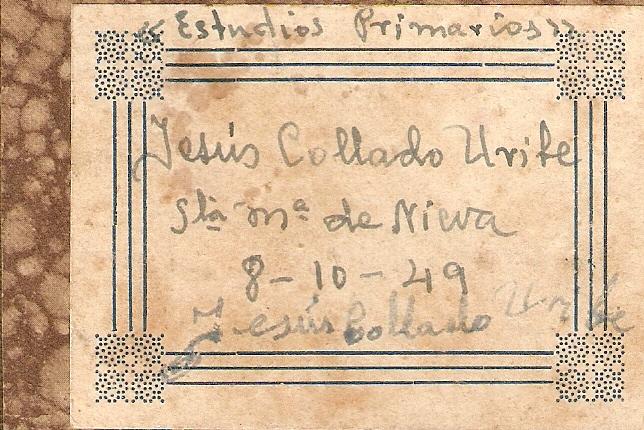 «Estudios Primarios»
Jesús Collado Uribe
Sta mª de Nieva
8-10-49
Jesús Collado Uribe